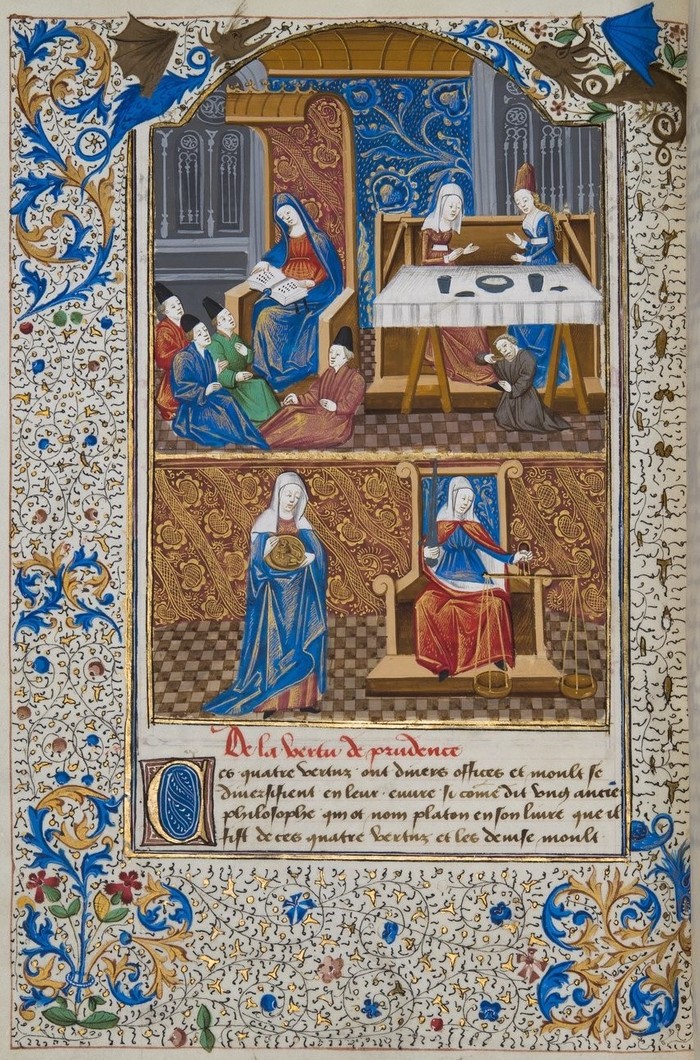 De la vertu de prudence
Ces quatre vertuz ont divers offices et moult se
diversifient en leur euvre si come dit ung ancie
philosophe qui ot nom platon en son livre que il
fist de ces quatre vertuz et les devise moult